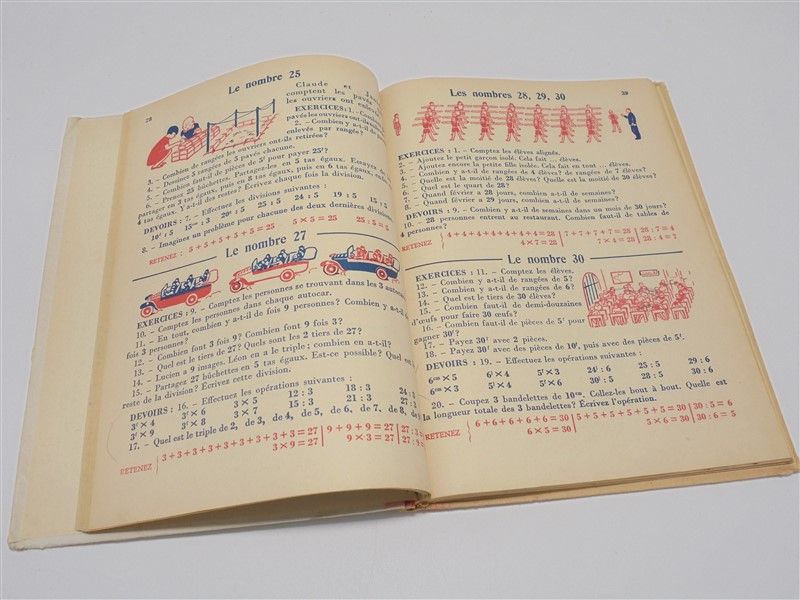 28
Le nombre 25
Claude et
comptent les pavés
les ouvriers ont
EXERCICES : 1. - Combien
pavés les ouvriers ont-ils
2. - Combien y a-t-il de
enlevés par rangée?
3. - Combien de rangées les ouvriers ont-ils retirées?
4. - Dessinez 5 rangées de 5 pavés chacune.
5. - Combien faut-il de pièces de 5f pour payer 25f?
6. - Prenez 25 bûchettes. Partagez-les en 5 tas égaux. Essayez de
partager en 3 tas égaux, puis en 8 tas égaux, puis en 6 tas égaux,
4 tas égaux. Y a-t-il des restes? Écrivez chaque fois la division.
DEVOIRS : 7. - Effectuez les divisions suivantes :
10f : 5 15m : 3 20f : 5 25 : 5 24 : 5 19 : 5 15 :
8. - Imaginez un problème pour chacune des deux dernières divisions.
RETENEZ : 5 + 5 + 5 + 5 + 5 = 25 5 × 5 = 25 25 : 5 = 5
Le nombre 27
EXERCICES : 9. - Comptez les personnes se trouvant dans les 3 autocars
10. - Comptez les personnes dans chaque autocar.
11. - En tout, combien y a-t-il de fois 9 personnes? Combien y a-t-il
fois 3 personnes?
12. - Combien font 3 fois 9? Combien font 9 fois 3?
13. - Quel est le tiers de 27? Quels sont les 2 tiers de 27?
14. - Lucien a 9 images. Léon en a le triple; combien en a-t-il?
15. - Partagez 27 bûchettes en 5 tas égaux. Est-ce possible? Quel est
reste de la division? Écrivez cette division.
DEVOIRS : 16. - Effectuez les opérations suivantes :
3f × 4 3f × 6 3 × 5 12 : 3 18 : 3 24 :
3f × 9 3f × 8 3 × 7 15 : 3 21 : 3 27 :
17. - Quel est le triple de 2, de 3, de 4, de 5, de 6, de 7, de 8,
RETENEZ { 3 + 3 + 3 + 3 + 3 + 3 + 3 + 3 + 3 = 27 | 9 + 9 + 9 = 27 | 27 : 3
3 × 9 = 27 | 9 × 3 = 27 | 27 : 9
Les nombres 28, 29, 30
29
EXERCICES : 1. - Comptez les élèves alignés.
2. - Ajoutez le petit garçon isolé. Cela fait ... élèves.
3. - Ajoutez encore la petite fille isolée. Cela fait en tout ... élèves.
4. - Combien y a-t-il de rangées de 4 élèves? de rangées de 7 élèves?
5. - Quelle est la moitié de 28 élèves? Quelle est la moitié de 30 élèves?
6. - Quel est le quart de 28?
7. - Quand février a 28 jours, combien a-t-il de semaines?
8. - Quand février a 29 jours, combien a-t-il de semaines?
DEVOIRS : 9. - Combien y a-t-il de semaines dans un mois de 30 jours?
10. - 28 personnes entrent au restaurant. Combien faut-il de tables de
4 personnes?
RETENEZ { 4 + 4 + 4 + 4 + 4 + 4 + 4 = 28 | 7 + 7 + 7 + 7 = 28 | 28 : 7 = 4
4 × 7 = 28 | 7 × 4 = 28 | 28 : 4 = 7
Le nombre 30
EXERCICES : 11. - Comptez les élèves.
12. - Combien y a-t-il de rangées de 5?
13. - Combien y a-t-il de rangées de 6?
14. - Quel est le tiers de 30 élèves?
15. - Combien faut-il de demi-douzaines
d'œufs pour faire 30 œufs?
16. - Combien faut-il de pièces de 5f pour
gagner 30f?
17. - Payez 30f avec 2 pièces.
18. - Payez 30f avec des pièces de 10f, puis avec des pièces de 5f.
DEVOIRS : 19. - Effectuez les opérations suivantes :
6cm × 5 6f × 4 5f × 3 24f : 6 25 : 5 29 : 6
6cm × 3 5f × 4 5f × 6 30f : 5 28 : 5 30 : 6
20. - Coupez 3 bandelettes de 10cm. Collez-les bout à bout. Quelle est
la longueur totale des 3 bandelettes? Écrivez l'opération.
RETENEZ { 6 + 6 + 6 + 6 + 6 = 30 | 5 + 5 + 5 + 5 + 5 + 5 = 30 | 30 : 5 = 6
6 × 5 = 30 | 5 × 6 = 30 | 30 : 6 = 5